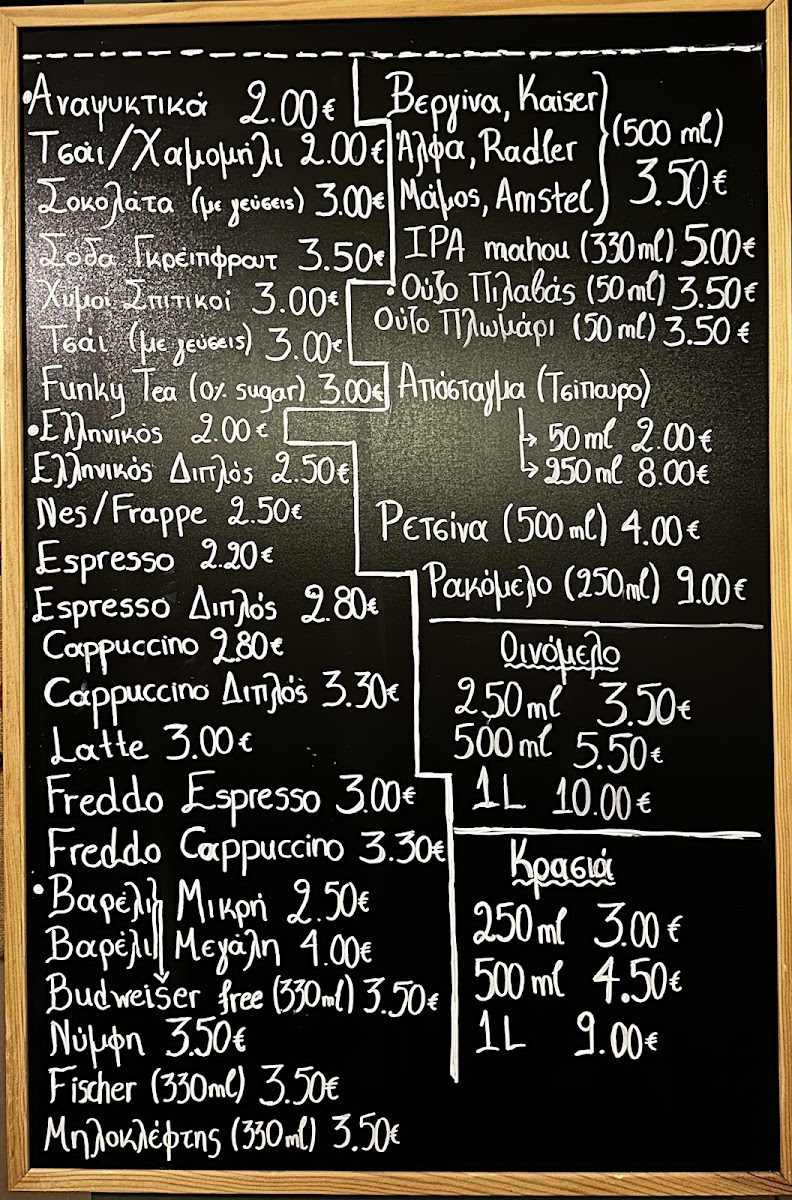 Αναψυκτικά 2.00€
Τσάι/Χαμομήλι 2.00€
Σοκολάτα (με γεύσεις) 3.00€
Σόδα Γκρέιπφρουτ 3.50€
Χυμοί Σπιτικοί 3.00€
Τσάι (με γεύσεις) 3.00€
Funky Tea (0% sugar) 3.00€
Ελληνικός 2.00€
Ελληνικός Διπλός 2.50€
Nes/Frappe 2.50€
Espresso 2.20€
Espresso Διπλός 2.80€
Cappuccino 2.80€
Cappuccino Διπλός 3.30€
Latte 3.00€
Freddo Espresso 3.00€
Freddo Cappuccino 3.30€
Βαρέλι Μικρή 2.50€
Βαρέλι Μεγάλη 4.00€
Budweiser free (330ml) 3.50€
Νύμφη 3.50€
Fischer (330ml) 3.50€
Μηλοκλέφτης (330ml) 3.50€
Βεργίνα, Kaiser
Άλφα, Radler
Μάμος, Amstel
(500 ml)
3.50€
IPA mahou (330ml) 5.00€
Ούζο Πιλαβάς (50ml) 3.50€
Ούζο Πλωμάρι (50ml) 3.50€
Απόσταγμα (Τσίπουρο)
→ 50ml 2.00€
→ 250ml 8.00€
Ρετσίνα (500ml) 4.00€
Ρακόμελο (250ml) 9.00€
Οινόμελο
250ml 3.50€
500ml 5.50€
1L 10.00€
Κρασιά
250ml 3.00€
500ml 4.50€
1L 9.00€